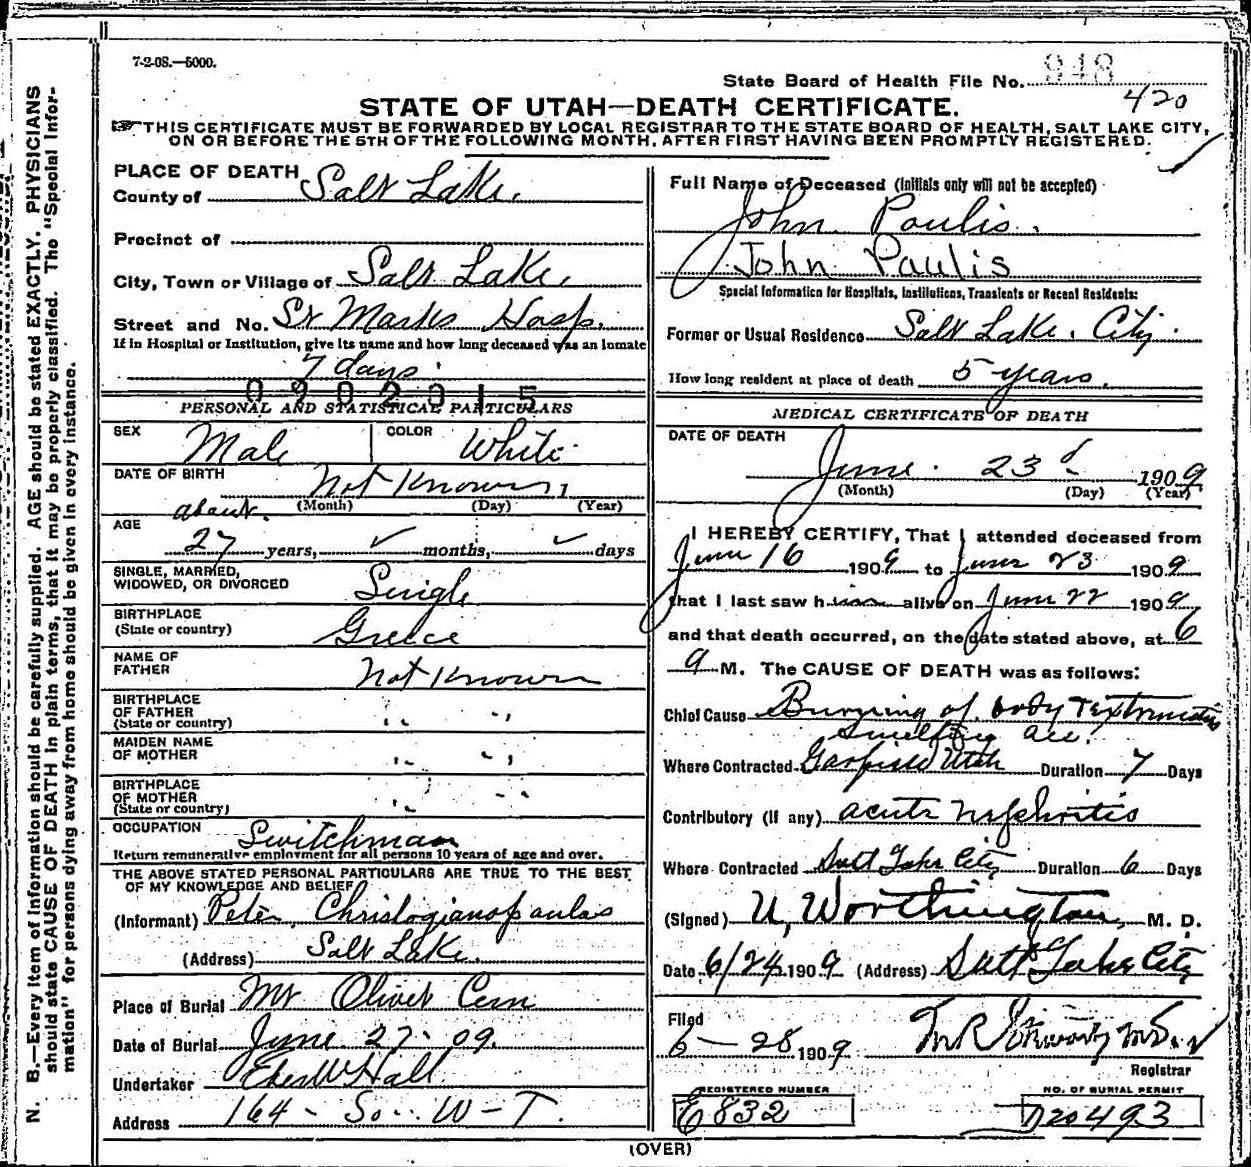 7-2-08.—5000.
State Board of Health File No. 948
420
STATE OF UTAH—DEATH CERTIFICATE.
THIS CERTIFICATE MUST BE FORWARDED BY LOCAL REGISTRAR TO THE STATE BOARD OF HEALTH, SALT LAKE CITY,
ON OR BEFORE THE 5TH OF THE FOLLOWING MONTH, AFTER FIRST HAVING BEEN PROMPTLY REGISTERED.
N. B.—Every item of information should be carefully supplied. AGE should be stated EXACTLY. PHYSICIANS
should state CAUSE OF DEATH in plain terms, that it may be properly classified. The "Special Infor-
mation" for persons dying away from home should be given in every instance.
PLACE OF DEATH
County of Salt Lake.
Precinct of
City, Town or Village of Salt Lake.
Street and No. St Marks Hosp.
If in Hospital or Institution, give its name and how long deceased was an inmate
7 days.
0902015
PERSONAL AND STATISTICAL PARTICULARS
SEX Male COLOR White
DATE OF BIRTH Not Known
(Month) (Day) (Year)
AGE about
27 years, ✓ months, ✓ days
SINGLE, MARRIED,
WIDOWED, OR DIVORCED Single
BIRTHPLACE
(State or country) Greece
NAME OF
FATHER Not Known
BIRTHPLACE
OF FATHER " "
(State or country)
MAIDEN NAME
OF MOTHER " "
BIRTHPLACE
OF MOTHER " "
(State or country)
OCCUPATION Switchman
Return remunerative employment for all persons 10 years of age and over.
THE ABOVE STATED PERSONAL PARTICULARS ARE TRUE TO THE BEST
OF MY KNOWLEDGE AND BELIEF
(Informant) Peter Christogianopoulas
(Address) Salt Lake.
Place of Burial Mt Olivet Cem
Date of Burial June 27. 09.
Undertaker Eber W Hall
Address 164 - So. W - T.
Full Name of Deceased (Initials only will not be accepted)
John Poulis.
John Paulis
Special Information for Hospitals, Institutions, Transients or Recent Residents:
Former or Usual Residence Salt Lake. City.
How long resident at place of death 5 years.
MEDICAL CERTIFICATE OF DEATH
DATE OF DEATH
June. 23d 1909
(Month) (Day) (Year)
I HEREBY CERTIFY, That I attended deceased from
June 16 1909 to June 23 1909
that I last saw him alive on June 22 1909
and that death occurred, on the date stated above, at 6
a M. The CAUSE OF DEATH was as follows:
Chief Cause Burning of body & extremities
smelting acc.
Where Contracted Garfield Utah Duration 7 Days
Contributory (if any) acute nephritis
Where Contracted Salt Lake City Duration 6 Days
(Signed) U, Worthington, M. D.
Date 6/24 1909 (Address) Salt Lake City
Filed
6 - 28 1909
Registrar
REGISTERED NUMBER
E832
NO. OF BURIAL PERMIT
20493
(OVER)